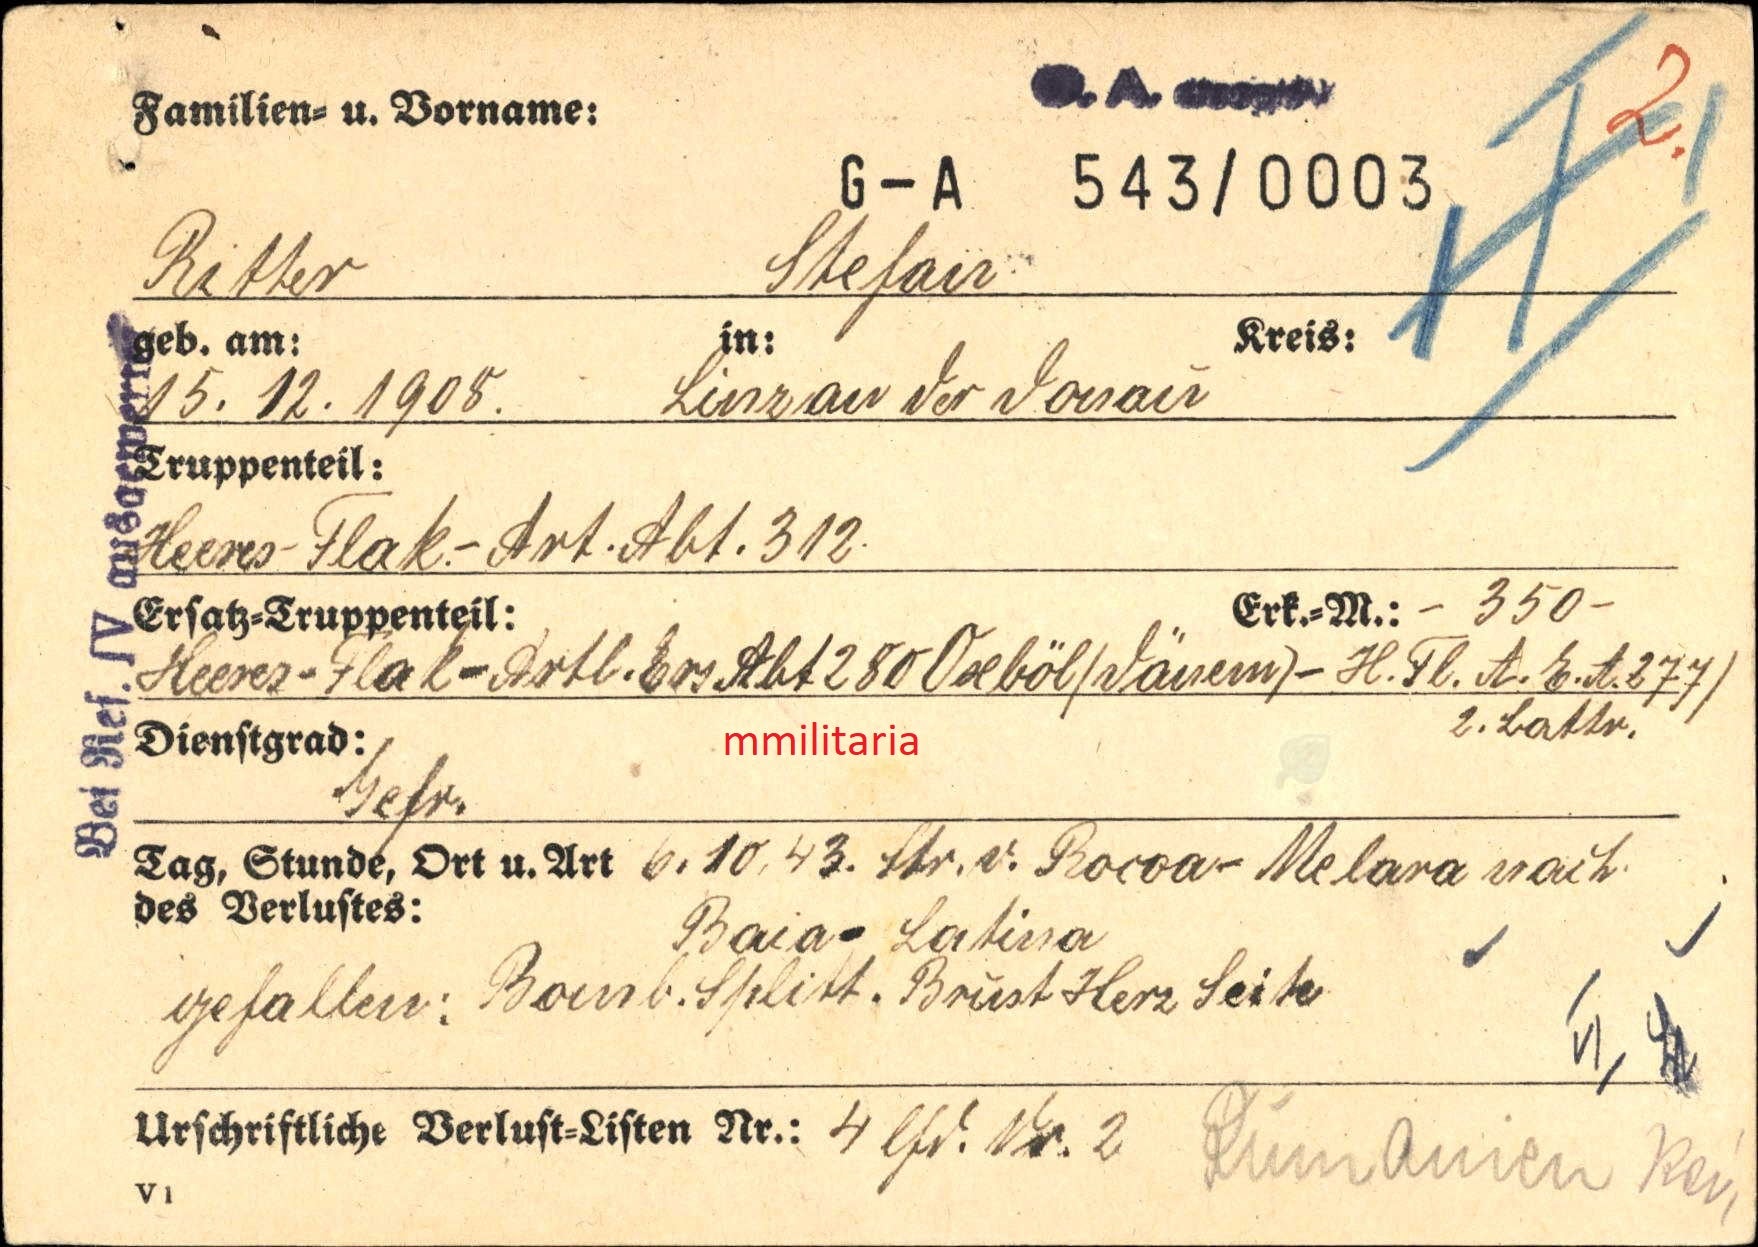 Familien- u. Vorname:
O. A.
2.
G-A 543/0003
Ritter Stefan
geb. am: in: Kreis:
15. 12. 1908. Linz an der Donau
Truppenteil:
Heeres-Flak.-Art.Abt. 312.
Ersatz-Truppenteil: Erk.-M.: - 350 -
Heeres-Flak-Artl.Ers Abt 280 Oxeböl (Dänem) - H. Fl. A. E. A. 277/
2. Battr.
Dienstgrad:
mmilitaria
Gefr.
Tag, Stunde, Ort u. Art 6. 10. 43. Str. v. Rocoa- Melara nach
des Verlustes:
Baia- Latina
gefallen: Bomb. Splitt. Brust Herz Seite
Urschriftliche Verlust-Listen Nr.: 4 lfd. Nr. 2
Rumänien
V 1
Bei Ref. IV ausgewertet